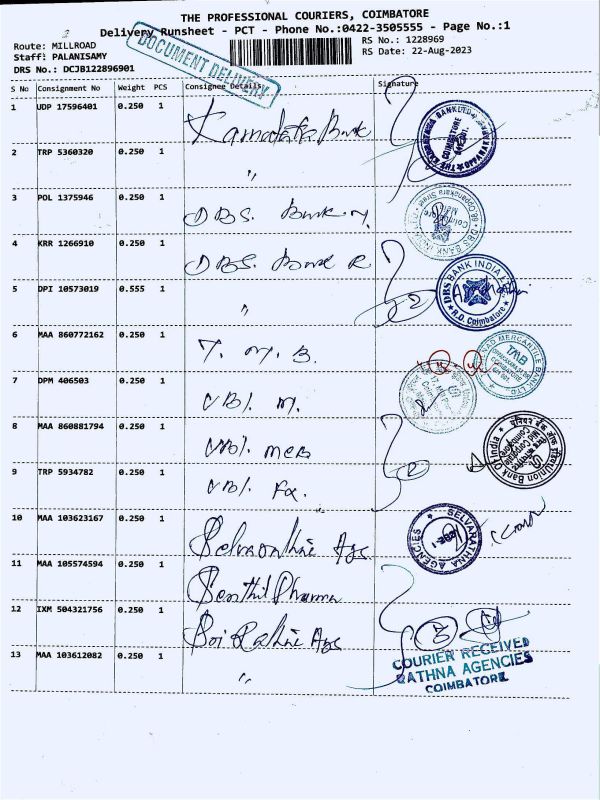 THE PROFESSIONAL COURIERS, COIMBATORE
Delivery Runsheet - PCT - Phone No.:0422-3505555 - Page No.:1
Route: MILLROAD
Staff: PALANISAMY
DRS No.: DCJB122896901
RS No.: 1228969
RS Date: 22-Aug-2023
DOCUMENT DELIVERY
S No Consignment No Weight PCS Consignee Details Signature
1 UDP 17596401 0.250 1 Karnataka Bank
2 TRP 5360320 0.250 1 "
3 POL 1375946 0.250 1 DBS. Bank M.
4 KRR 1266910 0.250 1 DBS. Bank R
5 DPI 10573019 0.555 1 "
DBS BANK INDIA
R.O. Coimbatore
6 MAA 860772162 0.250 1 T. M. B.
TMB
7 DPM 406503 0.250 1 UBI. M.
8 MAA 860881794 0.250 1 UBI. MCB
Union Bank Of India
9 TRP 5934782 0.250 1 UBI. Fx.
10 MAA 103623167 0.250 1 Selvarathna Ags
SELVARATHNA AGENCIES
11 MAA 105574594 0.250 1 Senthil Pharma
12 IXM 504321756 0.250 1 Sri Rathna Ags
13 MAA 103612082 0.250 1 "
COURIER RECEIVED
RATHNA AGENCIES
COIMBATORE